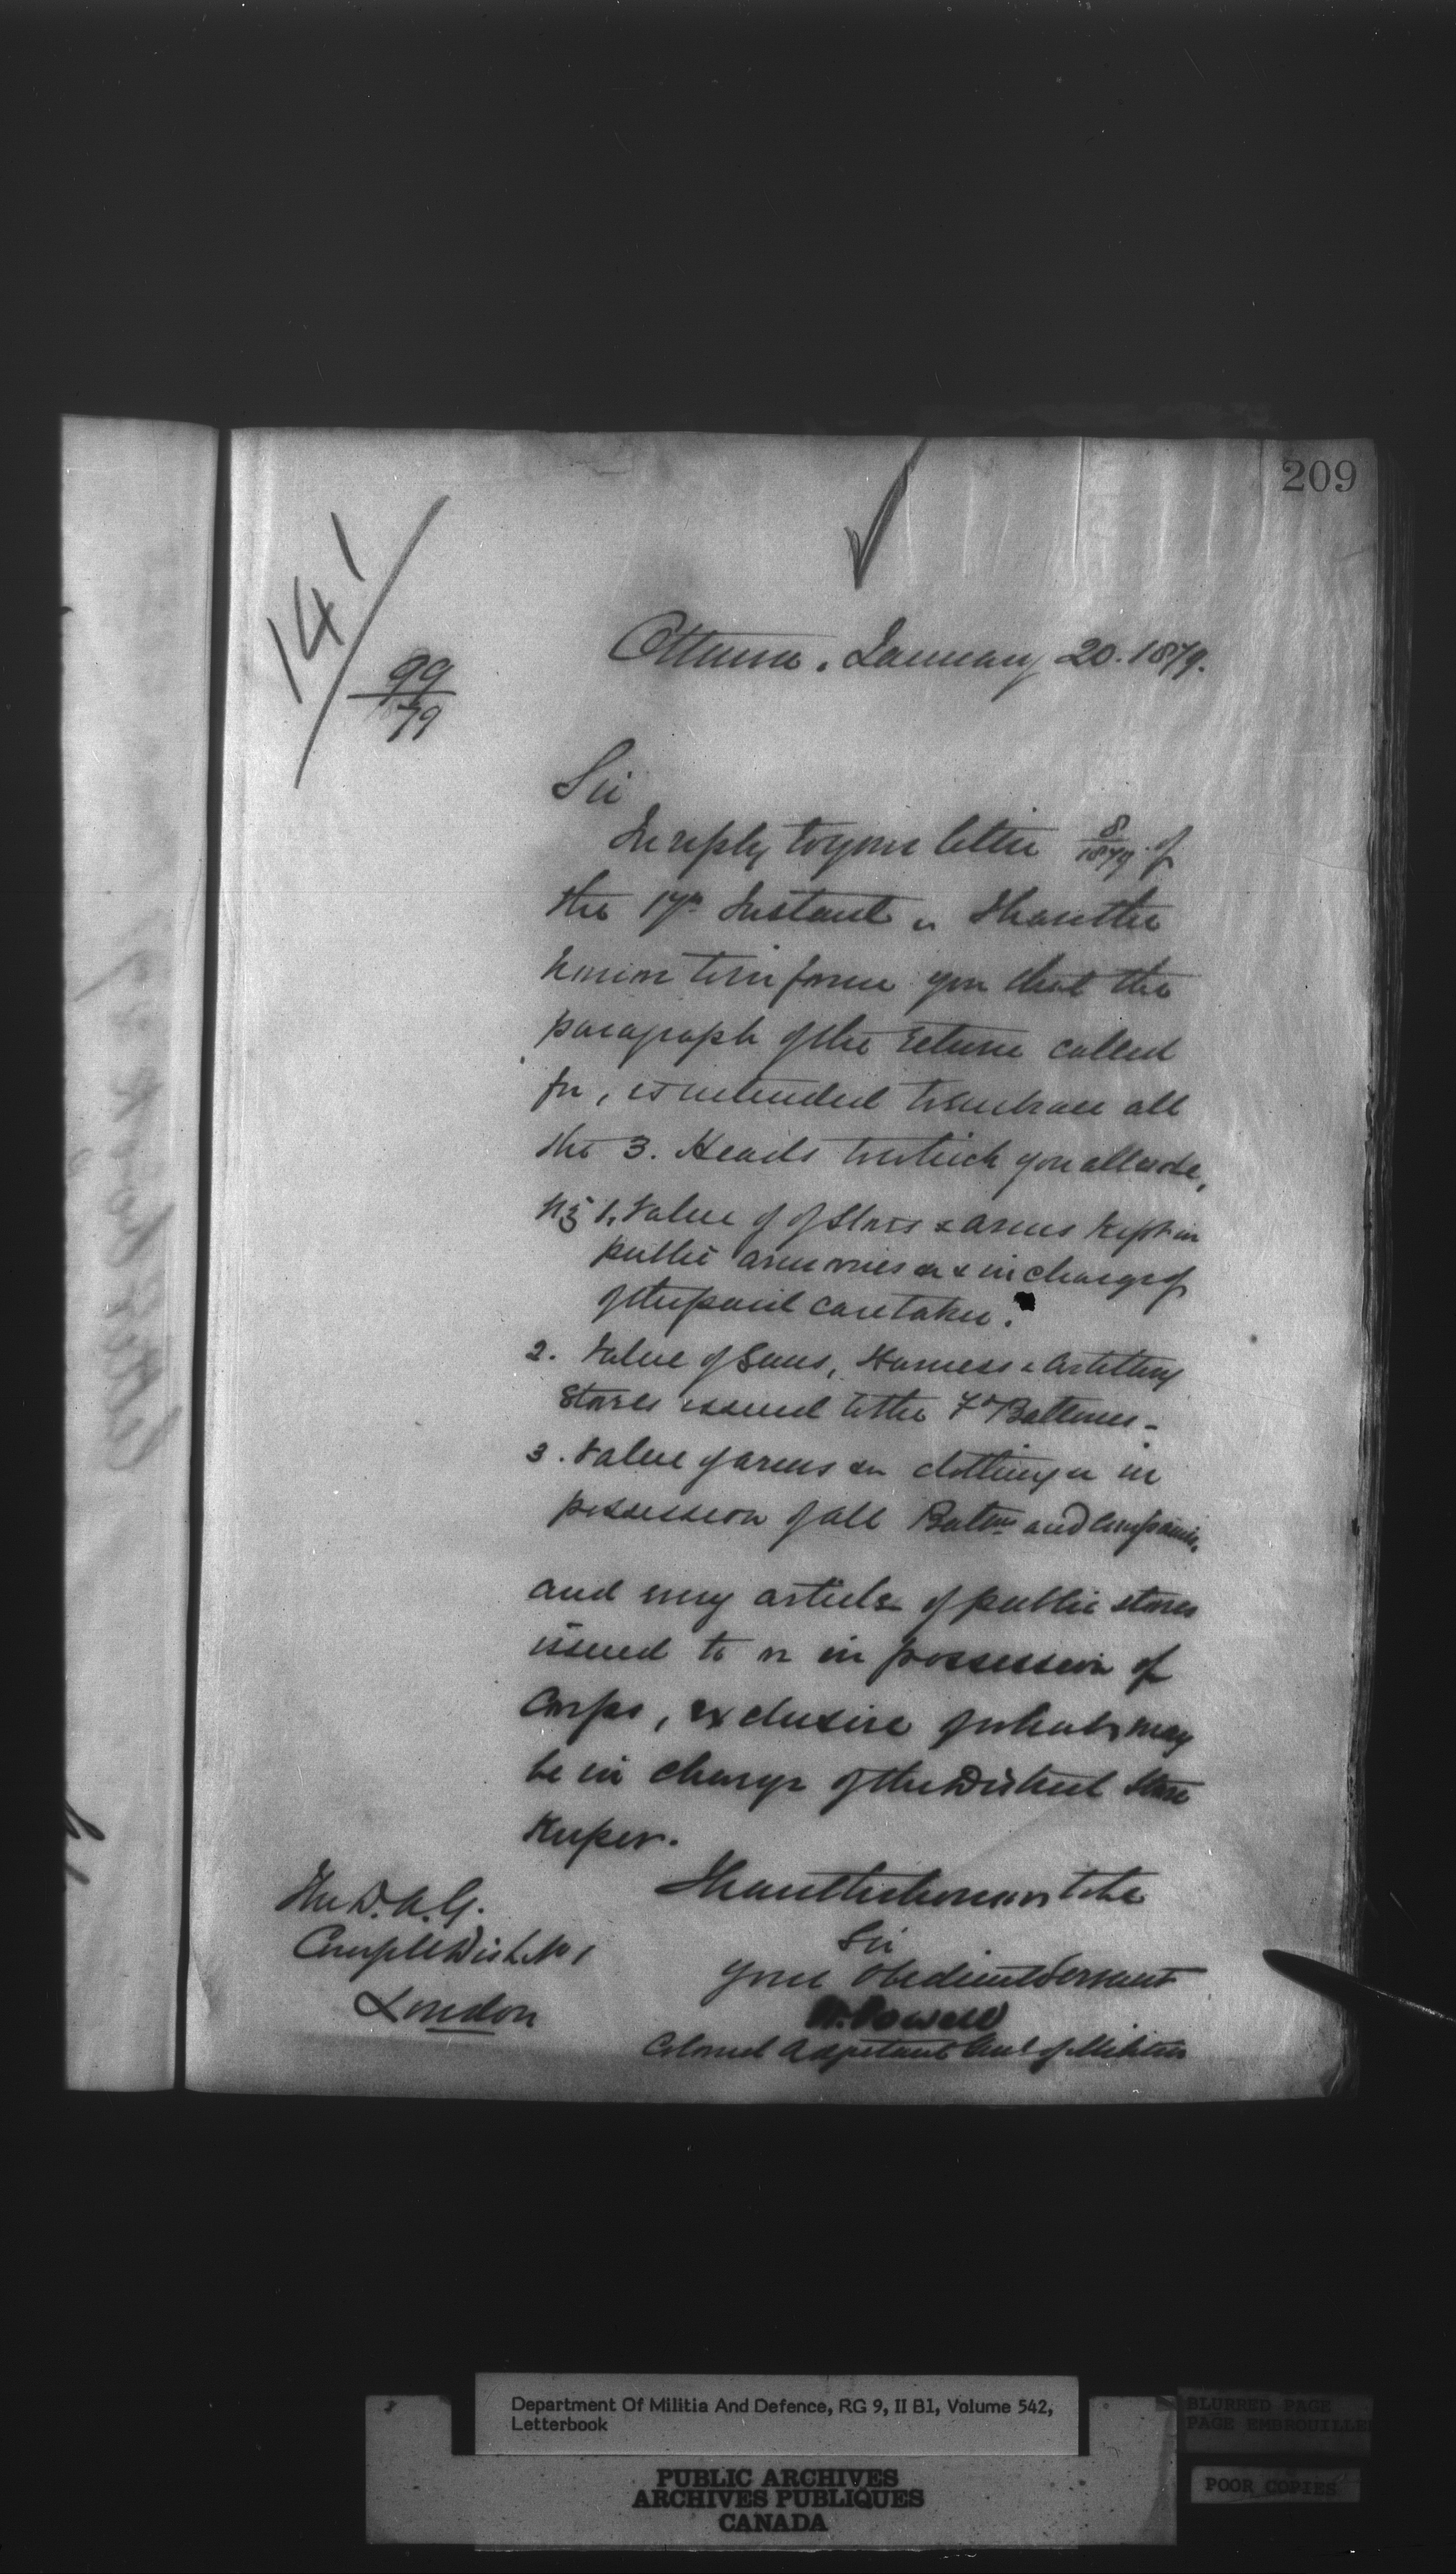 209
141
99
79
Ottawa. January 20. 1879.
Sir
In reply to your letter 8/1879 of
the 17th Instant I have the
honor to inform you that the
paragraph of the return called
for, is intended to embrace all
the 3. Heads to which you allude,
Viz 1. Value of of Stores & arms kept in
public armories & in charge of
of the paid caretaker.
2. Value of Guns, Harness & Artillery
Stores issued to the Fd Batteries -
3. Value of arms clothing in
possession of all Battns and Companies.
and every article of public stores
issued to or in possession of
Corps, exclusive of what may
be in charge of the District Store
Keeper.
I have the honor to be
Sir
Your Obedient Servant
W. Powell
Colonel Adjutant Genl of Militia
The D.A.G.
Comg Dist. No 1
London
Department Of Militia And Defence, RG 9, II B1, Volume 542,
Letterbook
PUBLIC ARCHIVES
ARCHIVES PUBLIQUES
CANADA
BLURRED PAGE
PAGE EMBROUILLE
POOR COPIES